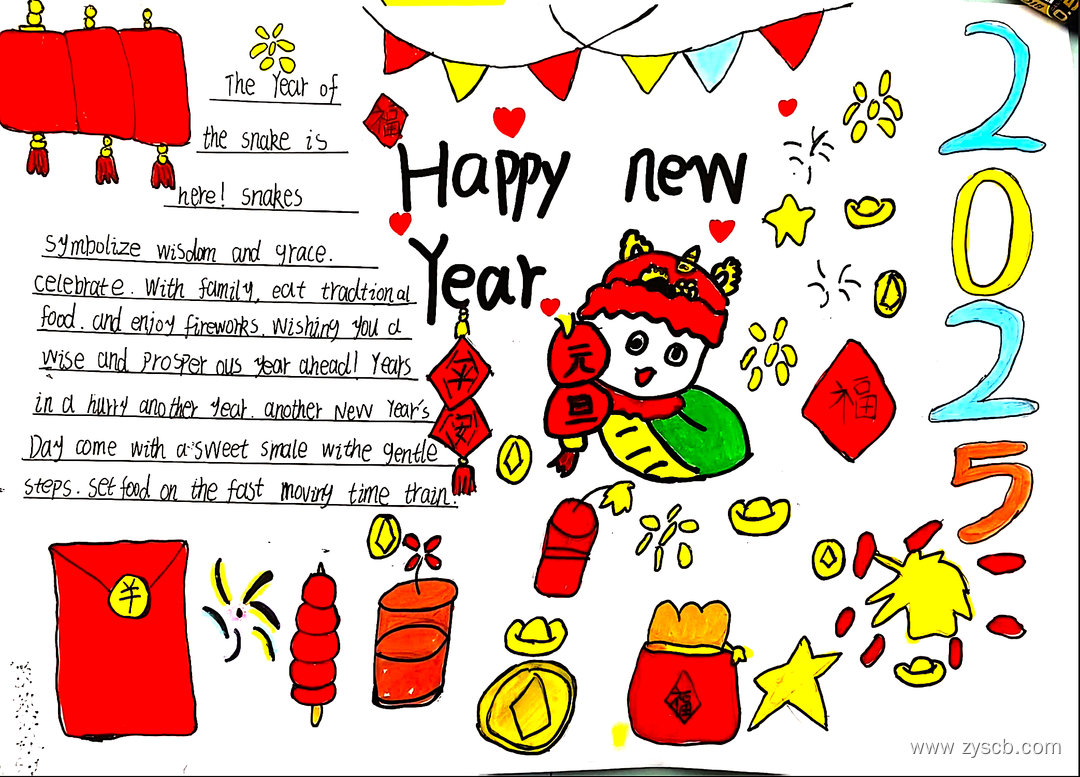 The Year of
the snake is
here! snakes
symbolize wisdom and grace.
celebrate. With family, eat tradtional
food. and enjoy fireworks. Wishing you a
wise and prosper ous year ahead! Years
in a hurry another year. another New Year's
Day come with a sweet smale withe gentle
steps. set food on the fast moving time train.
福
Happy new
Year
2025
元
旦
平
安
福
羊
福
www.zyscb.com